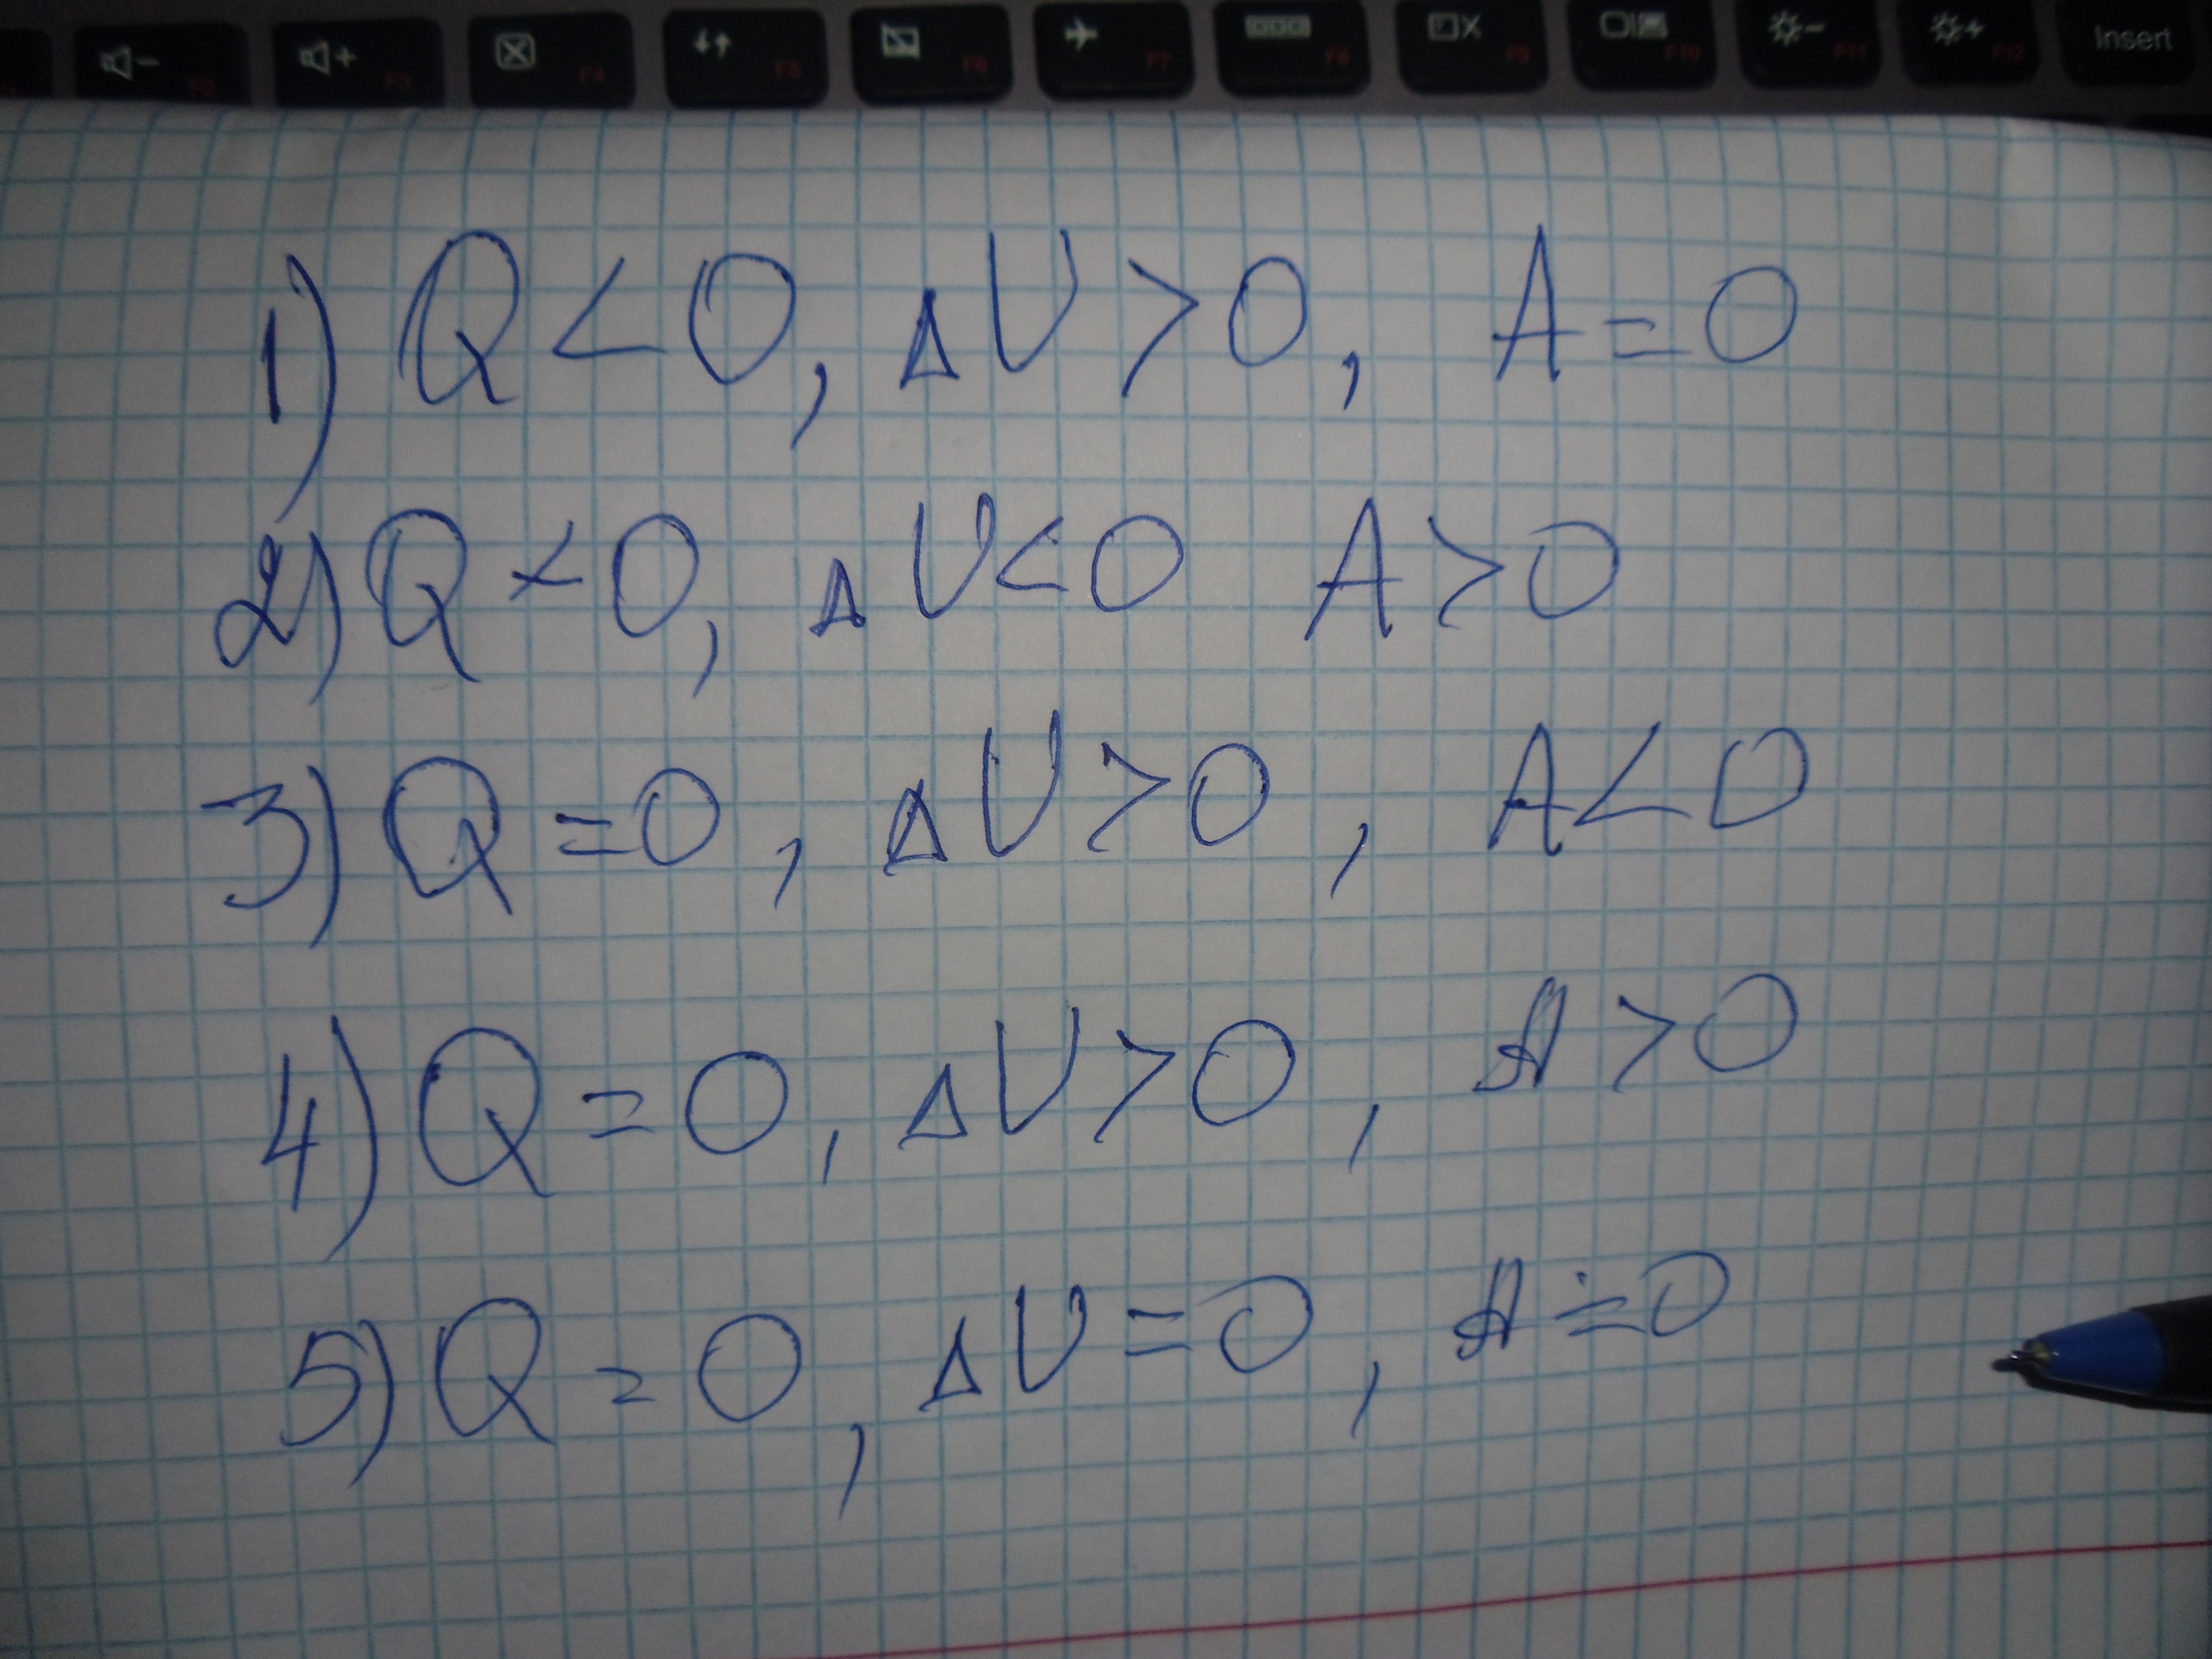 F2 F3 F4 F5 F6 F7 F8 F9 F10 F11 F12 Insert
1) Q < 0, ΔU > 0, A = 0
2) Q < 0, ΔU < 0 A > 0
3) Q = 0, ΔU > 0, A < 0
4) Q = 0, ΔU > 0, A > 0
5) Q = 0, ΔU = 0, A = 0